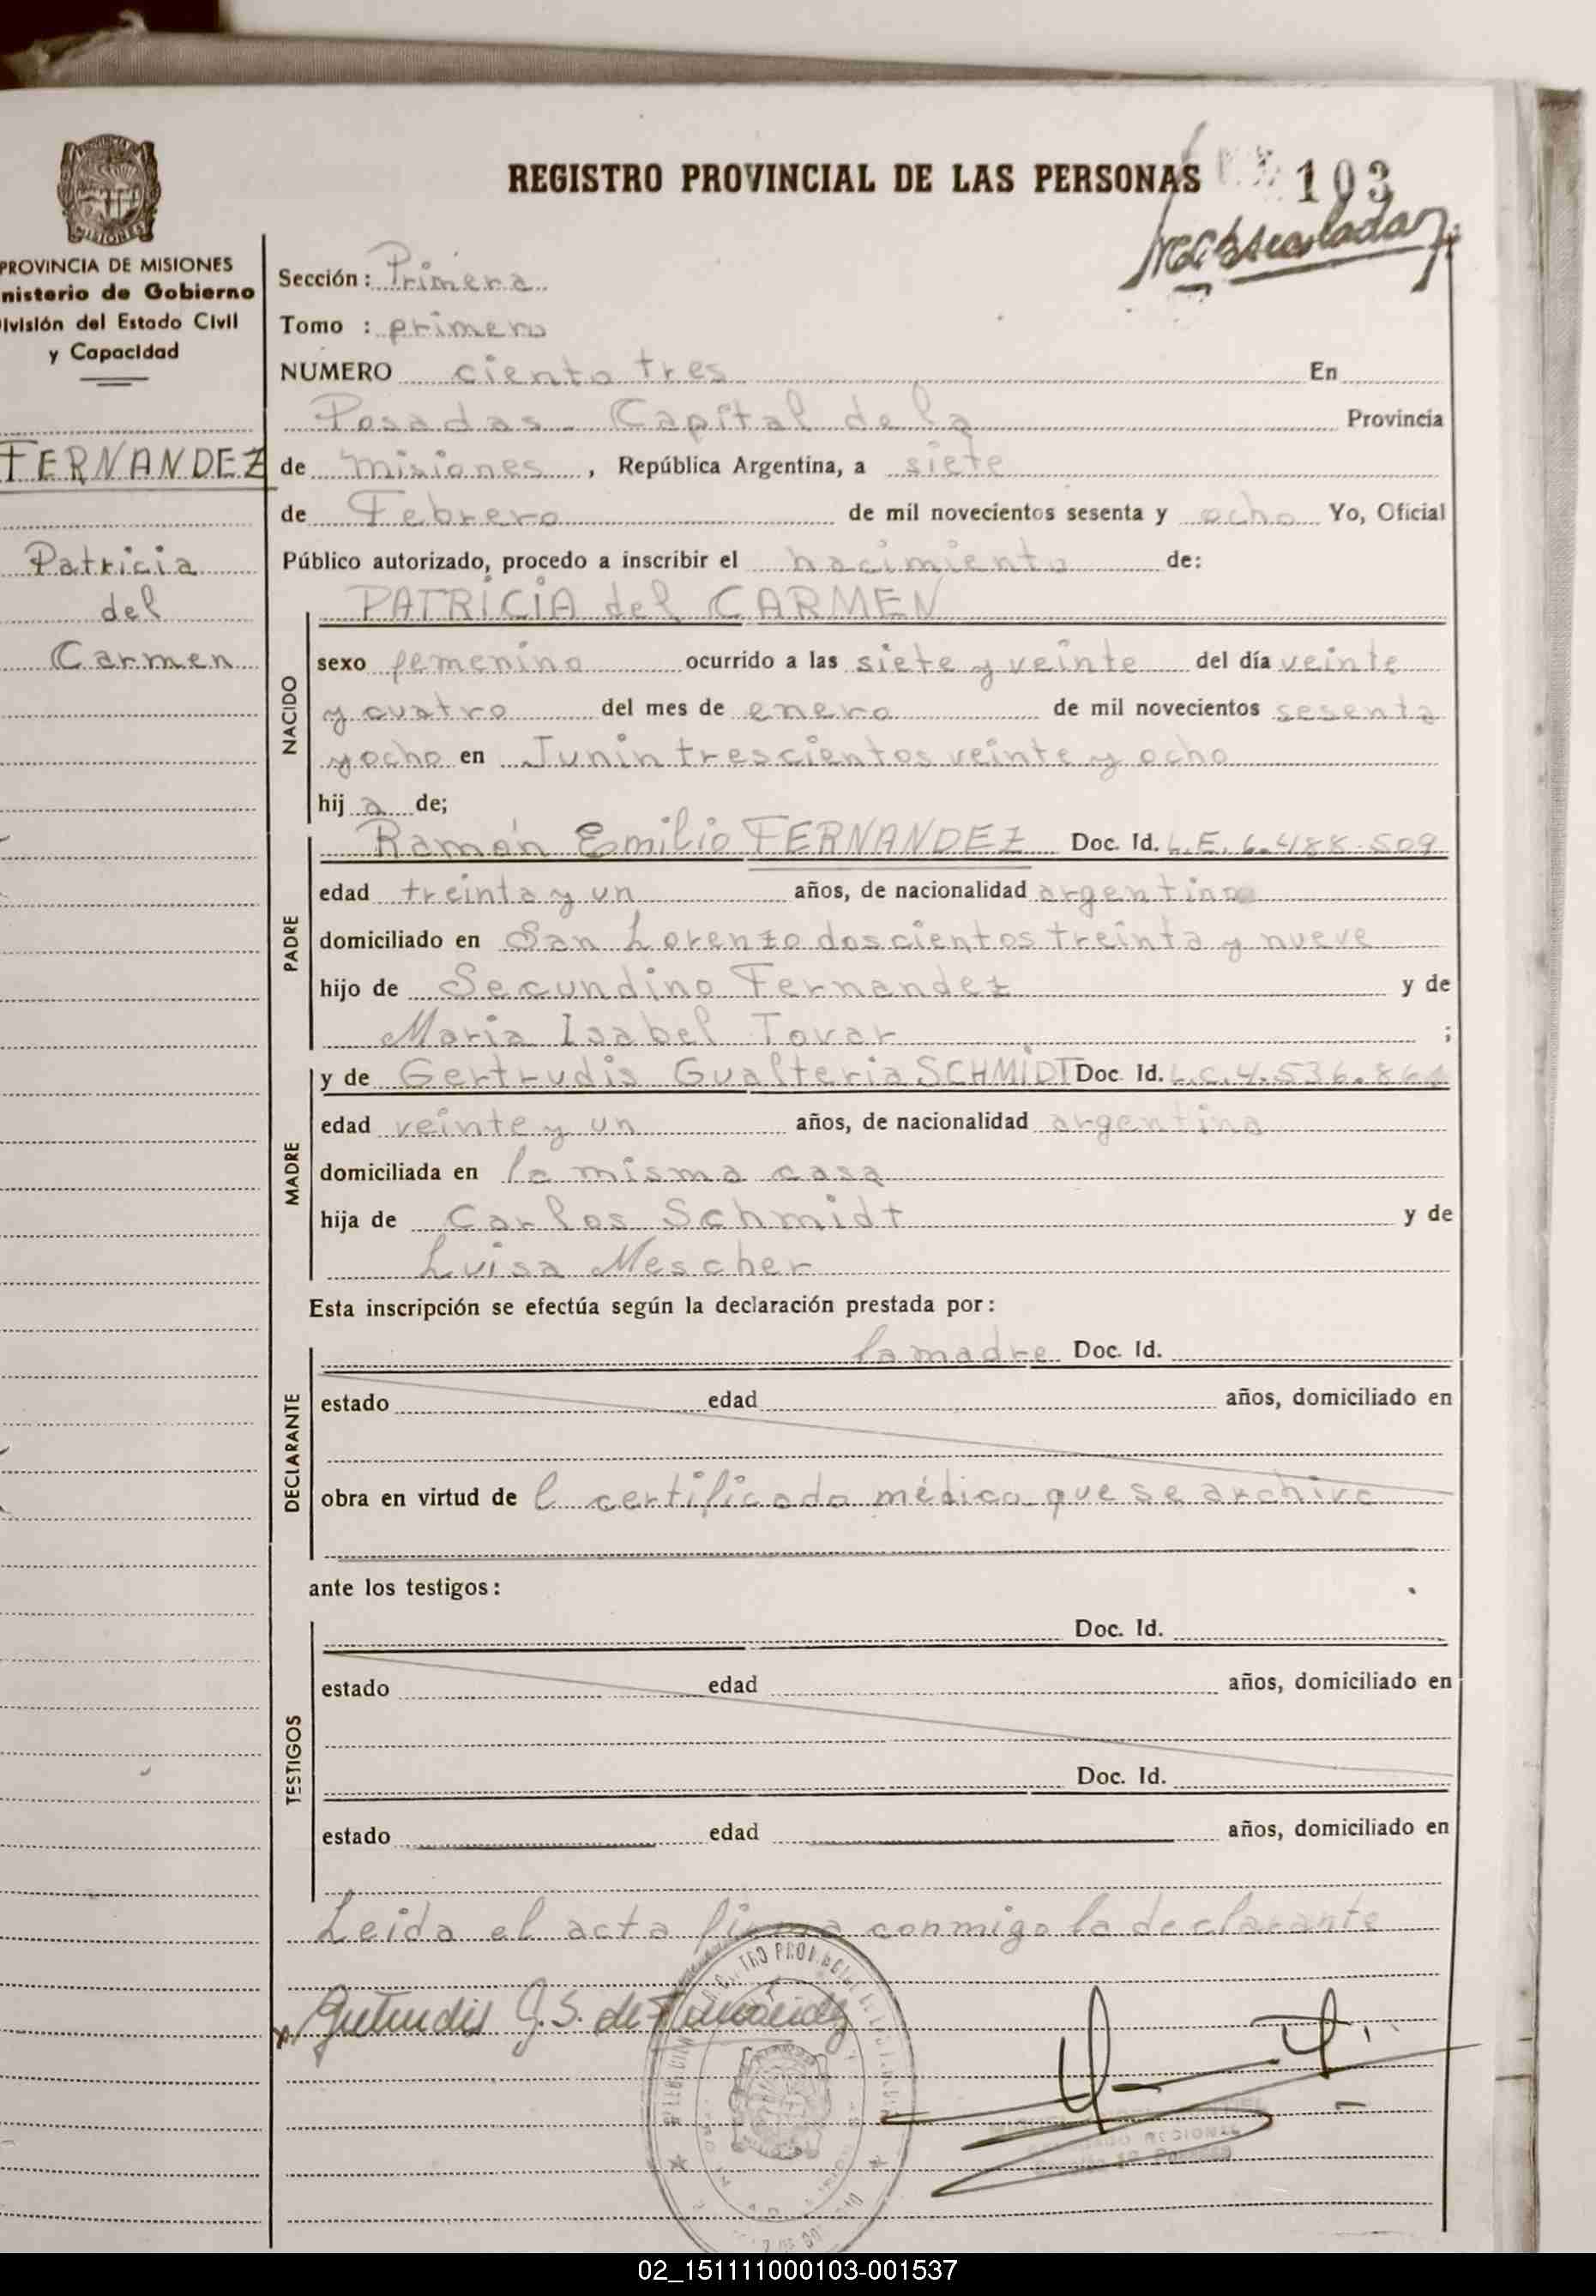 REGISTRO PROVINCIAL DE LAS PERSONAS 103
MISIONES
PROVINCIA DE MISIONES
nisterio de Gobierno
ivisión del Estado Civil
y Capacidad
FERNANDEZ
Patricia
del
Carmen
Sección: Primera
Tomo : primero
NUMERO ciento tres En
Posadas - Capital de la Provincia
de Misiones, República Argentina, a siete
de Febrero de mil novecientos sesenta y ocho Yo, Oficial
Público autorizado, procedo a inscribir el nacimiento de:
NACIDO
PATRICIA del CARMEN
sexo femenino ocurrido a las siete y veinte del día veinte
y cuatro del mes de enero de mil novecientos sesenta
y ocho en Junin trescientos veinte y ocho
hij a de;
PADRE
Ramón Emilio FERNANDEZ Doc. Id. L.E. 6.488.509
edad treinta y un años, de nacionalidad argentino
domiciliado en San Lorenzo doscientos treinta y nueve
hijo de Secundino Fernandez y de
Maria Isabel Tovar ;
MADRE
y de Gertrudis Gualteria SCHMIDT Doc. Id. L.C. 4.536.861
edad veinte y un años, de nacionalidad argentina
domiciliada en la misma casa
hija de Carlos Schmidt y de
Luisa Mescher
Esta inscripción se efectúa según la declaración prestada por:
DECLARANTE
la madre Doc. Id.
estado edad años, domiciliado en
obra en virtud de l certificado médico que se archiva
ante los testigos:
TESTIGOS
Doc. Id.
estado edad años, domiciliado en
Doc. Id.
estado edad años, domiciliado en
Leida el acta firma conmigo la declarante
Gertrudis G. S. de Fernández
02_151111000103-001537